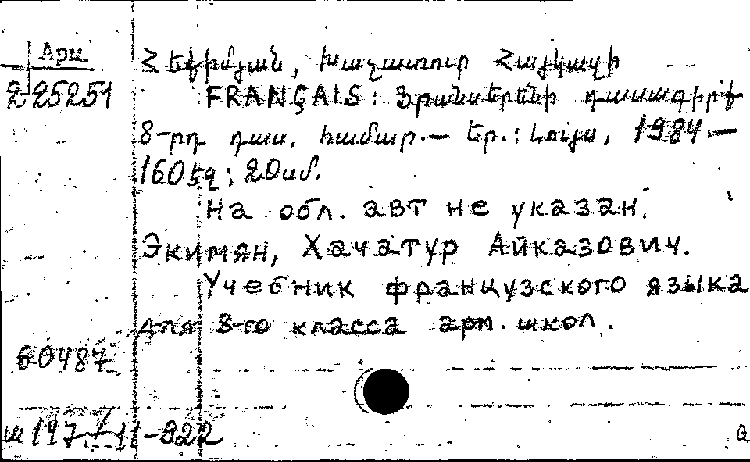 Арм
225251
Հեքիմյան, Խաչատուր Հայկազի
FRANÇAIS: Ֆրանսերենի դասագիրք
8-րդ դաս. համար.— Եր.: Լույս, 1984.—
160 էջ; 20 սմ.
На обл. авт не указан.
Экимян, Хачатур Айказович.
Учебник французского языка
для 8-го класса арм. школ.
60487
11-822